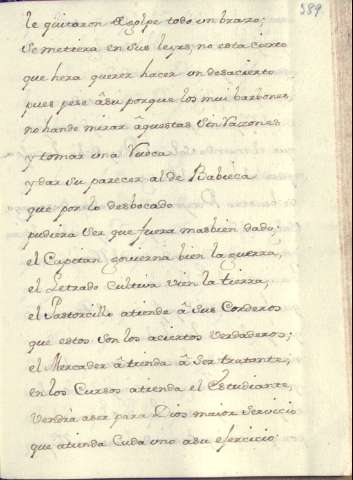 389
le quitaron de golpe todo un brazo;
se metiera en sus leyes; no esta cierto
que hera querer hacer un desacierto
pues pese âsu porque los mui barbones,
no hande mirar âquestas Sin Razones
y tomar una Rueca
y dar su parecer al de Babieca
que por lo desbocado
pudiera ser que fuera masbien dado;
el Capitan govierna bien la guerra,
el Letrado Cultiva vien la tierra,
el Pastorcillo atiende â sus Corderos
que estos son los aciertos verdaderos;
el Mercader âtienda â Ser tratante,
en los Cursos atienda el Estudiante,
vendrâ aser para Dios maior Servicio
que atienda Cada uno asu ejercicio: